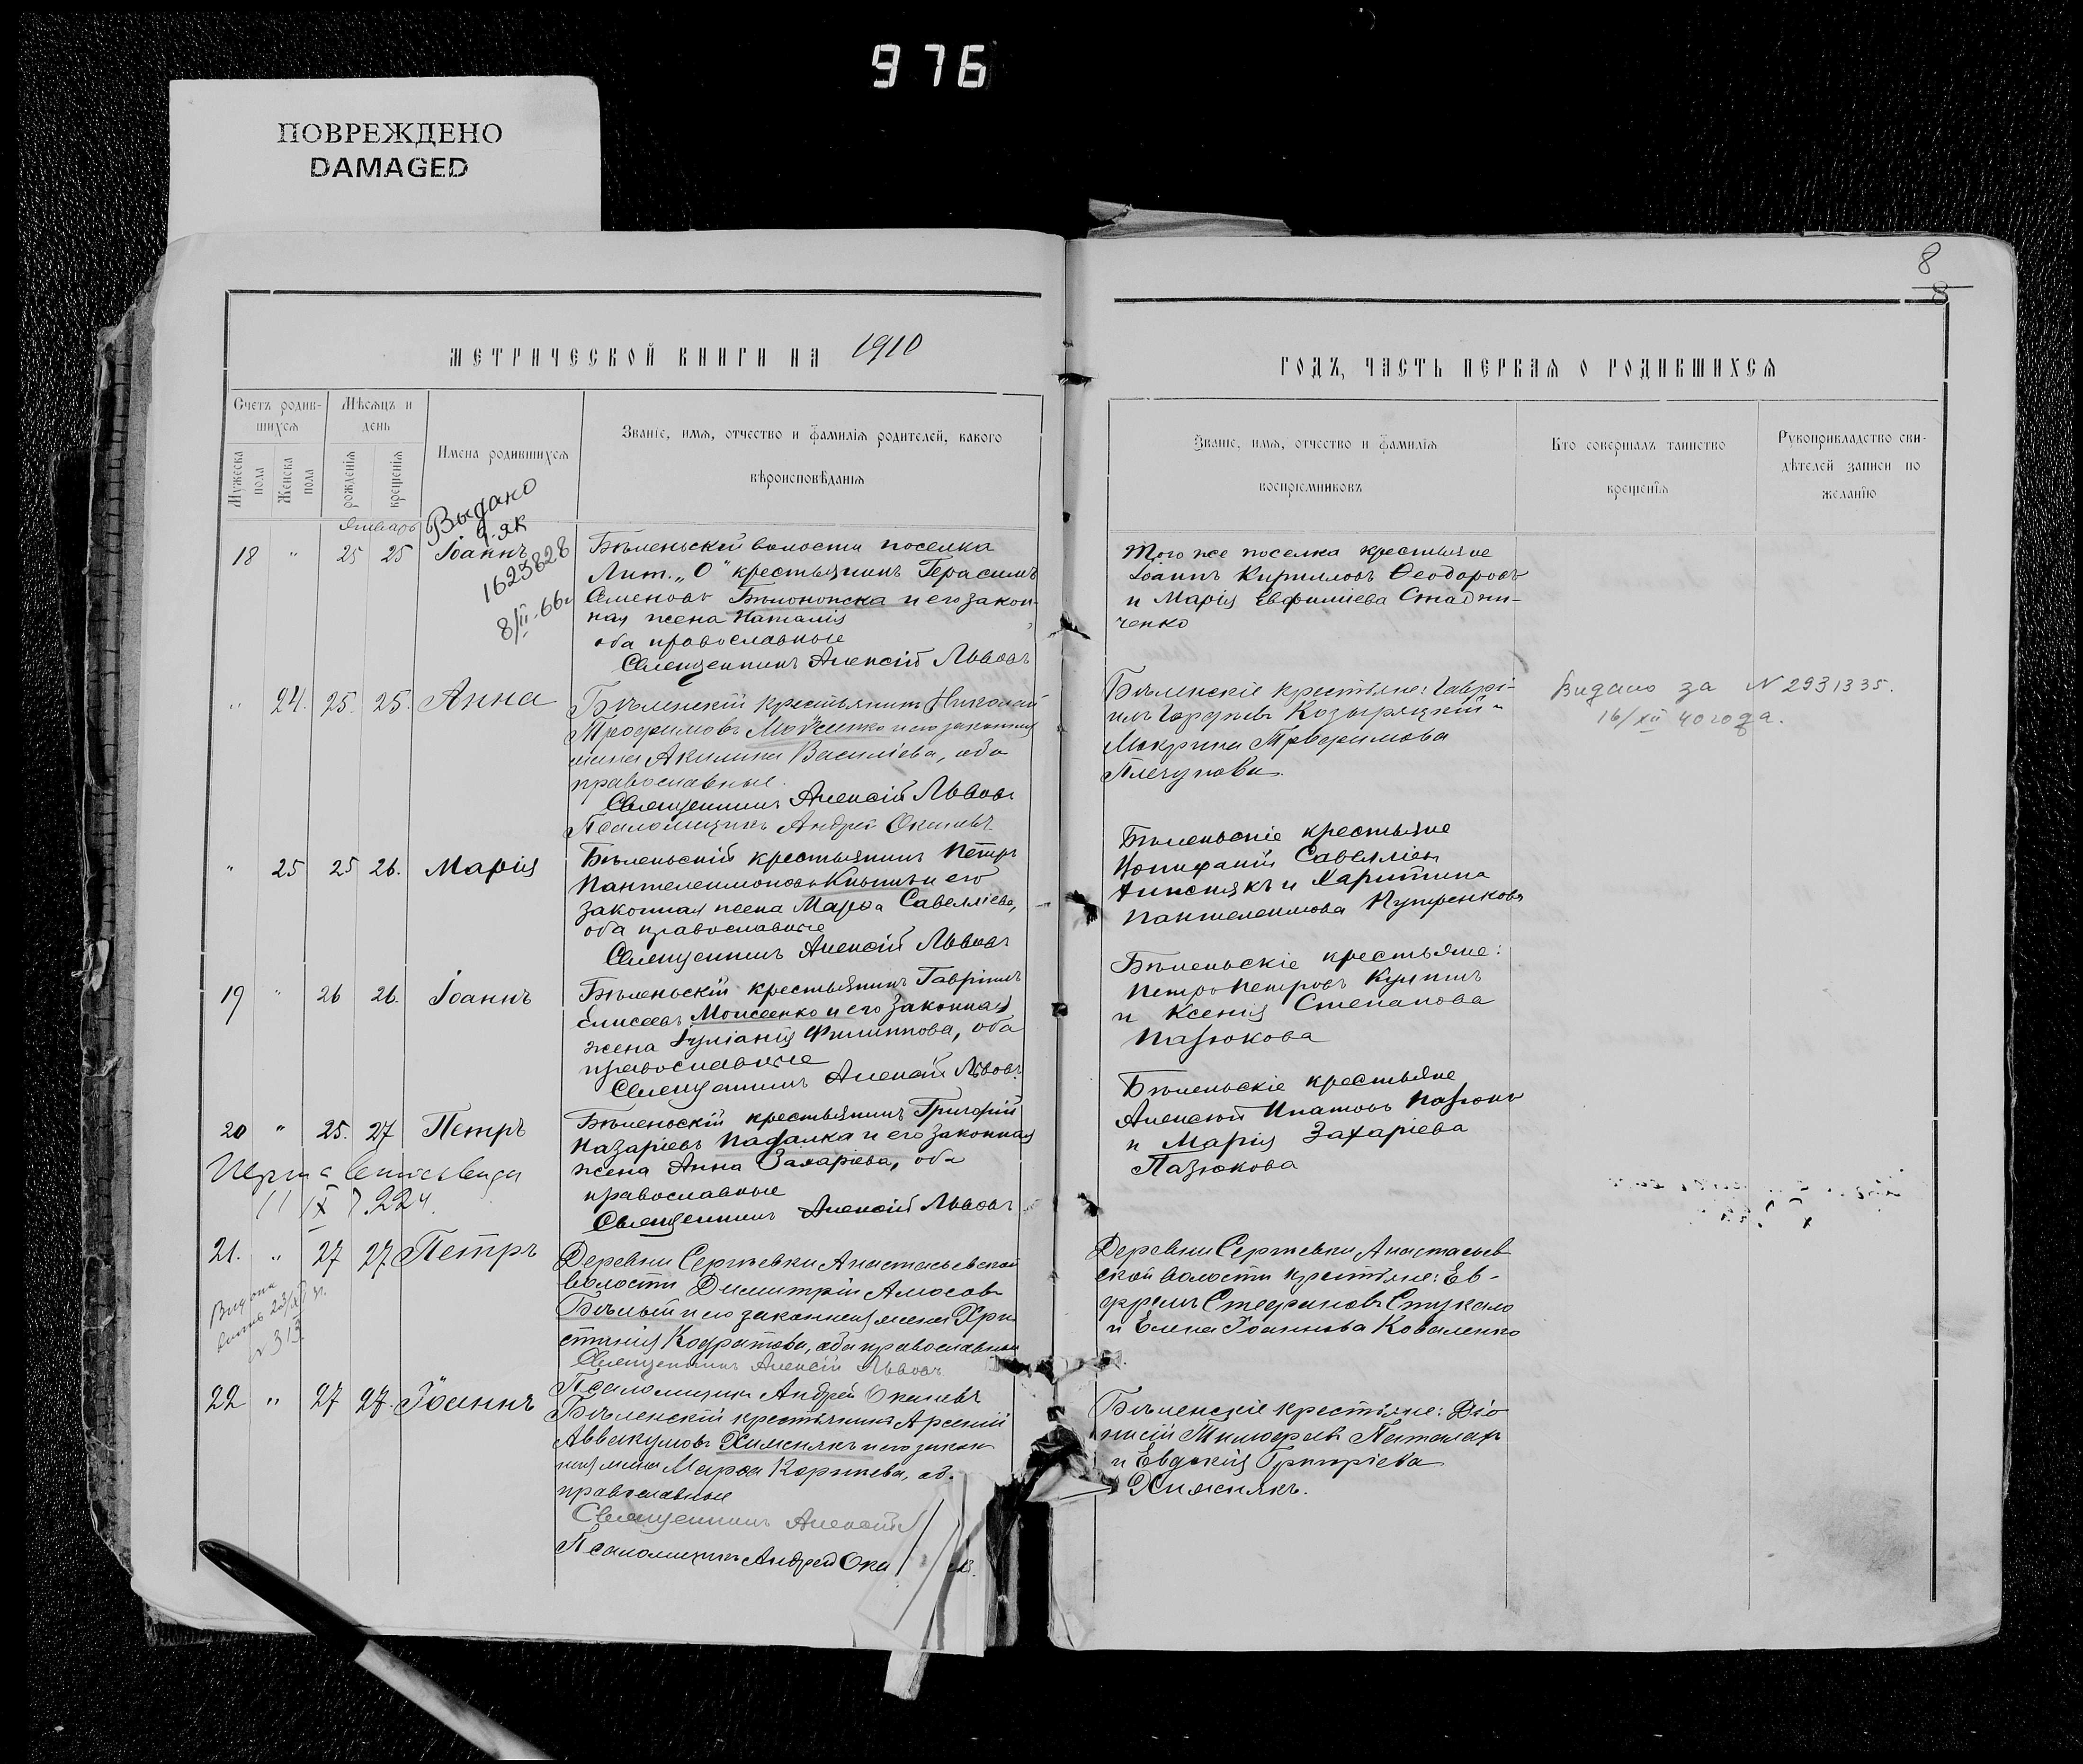 976
ПОВРЕЖДЕНО
DAMAGED
8
8
МЕТРИЧЕСКОЙ КНИГИ НА 1910
ГОДЪ, ЧАСТЬ ПЕРВАЯ О РОДИВШИХСЯ
Счетъ родив-
шихся
Мѣсяцъ и
день
Мужеска
пола
Женска
пола
рожденія
крещенія
Имена родившихся
Званіе, имя, отчество и фамилія родителей, какого
вѣроисповѣданія
Званіе, имя, отчество и фамилія
воспріемниковъ
Кто совершалъ таинство
крещенія
Рукоприкладство сви-
дѣтелей записи по
желанію
Январь
Выдано
1623828
8/II-66
18 " 25 25 Іоаннъ
Бѣленьской волости поселка
Лит. „О" крестьянинъ Герасимъ
Семеновъ и его закон-
ная жена Наталія
оба православные
Священникъ Алексій Львовъ
Того же поселка крестьяне
Іоаннъ Кирилловъ Ѳеодоровъ
и Марія Евфиміева Стадни-
ченко
" 24. 25. 25. Анна
Бѣленскій крестьянинъ Николай
Трофимовъ Мойсенко и его законная
жена Акилина Василіева, оба
православные.
Священникъ Алексій Львовъ
Псаломщикъ Андрей
Бѣленскіе крестьяне: Гаврі-
илъ Козыряцкій и
Макрина Трофимова
Плечунова.
Видано за N 2931335.
16/XII 40 года.
" 25 25 26. Марія
Бѣленьскій крестьянинъ Петръ
Пантелеимоновъ и его
законная жена Марѳа Савелліева,
оба православные
Священникъ Алексій Львовъ
Бѣленьскіе крестьяне
Савелліевъ
и Харитина
Пантелеимова
19 " 26 26. Іоаннъ
Бѣленьскій крестьянинъ Гавріилъ
Елисеевъ Моисеенко и его законная
жена Іуліанія Филиппова, оба
православные
Священникъ Алексій Львовъ
Бѣленьскіе крестьяне:
Петръ Петровъ
и Ксенія Степанова
Пазюкова
20 " 25. 27 Петръ
Бѣленьскій крестьянинъ Григорій
Назаріевъ Падалка и его законная
жена Анна Захаріева, оба
православные
Священникъ Алексій Львовъ
Бѣленьскіе крестьяне
Алексій Ипатовъ Пазюкъ
и Марія Захаріева
Пазюкова
21. " 27 27 Петръ
Деревни Сергѣевки Анастасьевской
волости Димитрій Амосовъ
Бѣлый и его законная жена Хри-
стинія Кодратова, оба православные
Священникъ Алексій Львовъ
Псаломщикъ Андрей
Деревни Сергѣевки Анастасьев-
ской волости крестьяне: Ев-
фремъ Стефановъ Стукало
и Елена Іоаннова Коваленко
22 " 27 27. Іоаннъ
Бѣленскій крестьянинъ Арсеній
Аввакумовъ Хижнякъ и его закон-
ная жена Марѳа
православные
Священникъ Алексій
Псаломщикъ Андрей
Бѣленскіе крестьяне: Діо-
нисій Тимоѳеевъ
и Евдокія Григоріева
Хижнякъ.